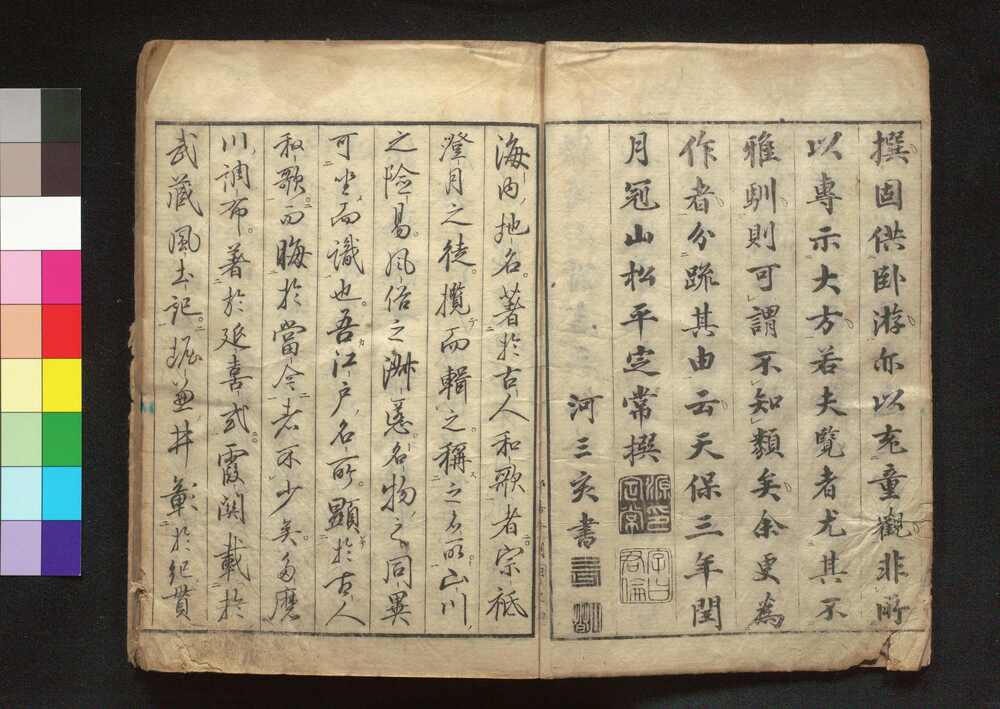 撰固供臥游亦以充童觀非所
以專示大方若夫覽者尤其不
雅馴則可謂不知類矣余更為
作者分疏其由云天保三年閏
月冠山松平定常撰
河三亥書
海内地名著於古人和歌者宗祗
澄月之徒攬而輯之稱之名所山川
之險易風俗之淋慝名物之同異
可坐而識也吾江戸名所顯於古人
和歌而晦於當今者不少矣多麽
川調布著於延喜式霞関載於
武藏風土記堀兼井載於紀貫